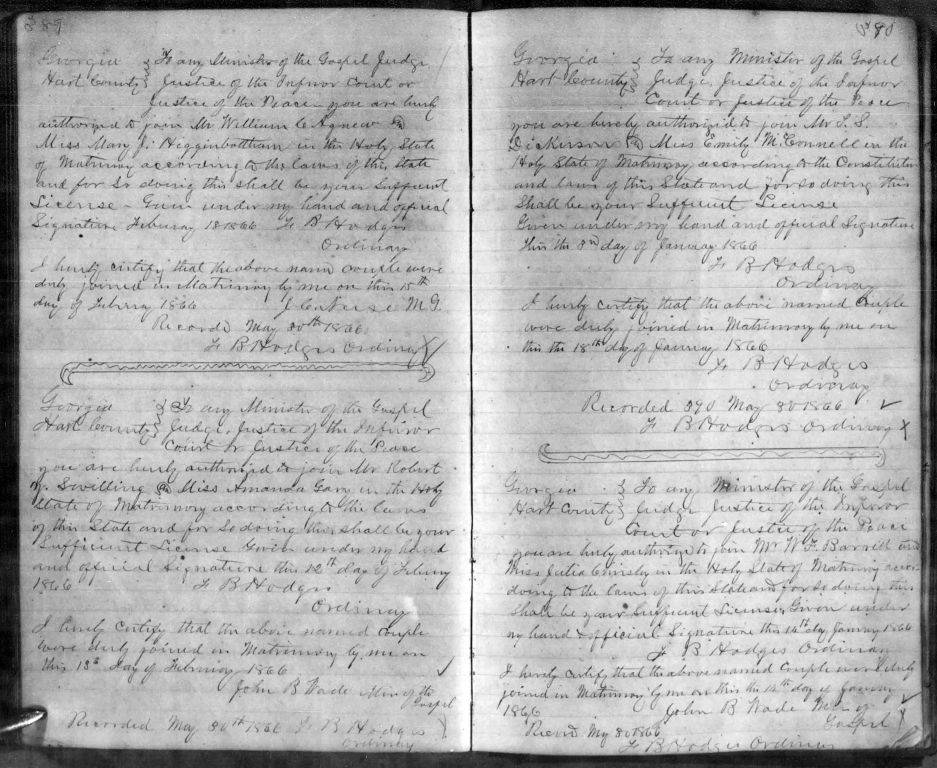 389
Georgia } To any Minister of the Gospel Judge
Hart County } Justice of the Inferior Court or
Justice of the Peace you are hereby
authorized to join Mr William C Agnew &
Miss Mary J. Higginbottham in the Holy State
of Matrimony according to the laws of this State
and for so doing this shall be your Sufficient
License - Given under my hand and official
Signature February 18 1866 F B Hodges
Ordinary
I hereby certify that the above name couple were
duly joined in Matrimony by me on this 15th
day of February 1866 M G
Recorded May 30th 1866
F B Hodges Ordinary
Georgia } To any Minister of the Gospel
Hart County } Judge, Justice of the Inferior
Court or Justice of the Peace
you are hereby authorized to join Mr Robert
Swilling & Miss Amanda Gary in the Holy
State of Matrimony according to the laws
of this State and for so doing this shall be your
Sufficient License Given under my hand
and official Signature this 12th day of Febuary
1866 F B Hodges
Ordinary
I hereby certify that the above named couple
were duly joined in Matrimony by me on
this 13th Day of February 1866
John B Wade Min of the
Gospel
Recorded May 30th 1866 F B Hodges
Ordinary
Georgia } To any Minister of the Gospel
Hart County } Judge, Justice of the Inferior
Court or Justice of the Peace
you are hereby authorized to join Mr
Dickerson & Miss Emily McConnell in the
Holy State of Matrimony according to the Constitution
and laws of this State and for so doing this
Shall be your Sufficient License
Given under my hand and official Signature
this the 3rd day of January 1866
F B Hodges
Ordinary
I hereby certify that the above named Couple
were duly joined in Matrimony by me on
this the 18th day of January 1866
F B Hodges
Ordinary
Recorded 390 May 30 1866
F B Hodges Ordinary
Georgia } To any Minister of the Gospel
Hart County } Judge Justice of the Inferior
Court or Justice of the Peace
you are hereby authorize to join Mr W F Barrett and
Miss Julia in the Holy State of Matrimony accor-
ding to the laws of this State and for so doing this
shall be your Sufficient License, Given under
my hand & official Signature this 14th day January 1866
F B Hodges Ordinary
I hereby certify that the above named Couple were duly
joined in Matrimony by me on this the 14th day of January
1866 John B Wade M of
Gospel
May 30 1866
F B Hodges Ordinary